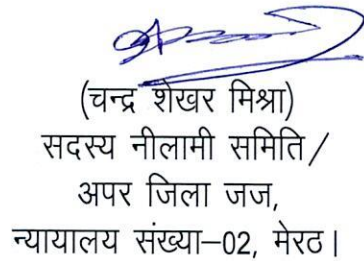 (चन्द्र शेखर मिश्रा)
सदस्य नीलामी समिति/
अपर जिला जज,
न्यायालय संख्या–02, मेरठ।